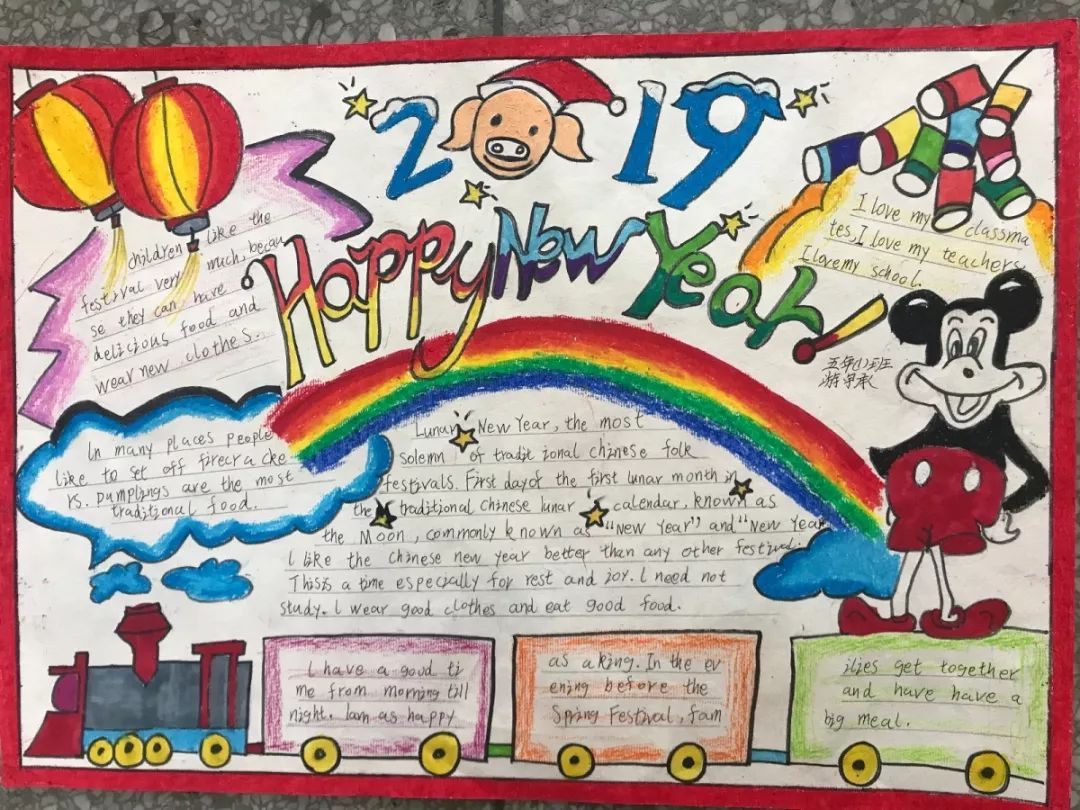 2019
Happy New Year!
children like the
festival very much, becau
se they can have
delicious food and
wear new clothes.
I love my classma
tes, I love my teachers,
I love my school.
五年(1)班
游
In many places people
like to set off firecracke
rs. Dumplings are the most
traditional food.
Lunar New Year, the most
solemn of traditional chinese folk
festivals. First day of the first lunar month in
the traditional chinese lunar calendar, known as
the Moon, commonly known as "New Year" and "New Year
I like the chinese new year better than any other festival.
This is a time especially for rest and joy. I need not
study. I wear good clothes and eat good food.
I have a good ti
me from morning till
night. Iam as happy
as a king. In the ev
ening before the
Spring Festival, fam
ilies get together
and have have a
big meal.